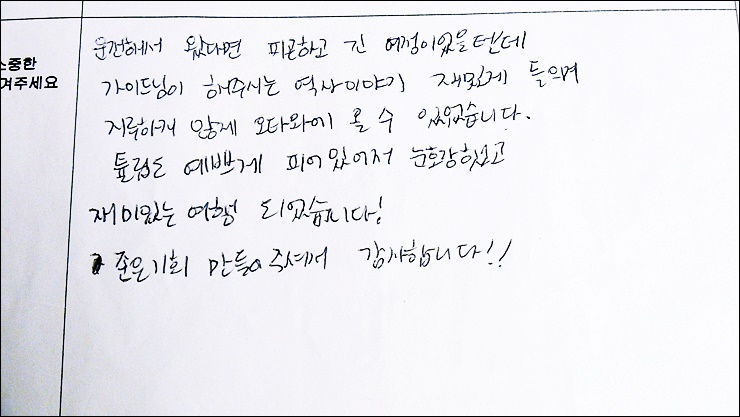 소중한
겨주세요
운전해서 왔다면 피곤하고 긴 여정이었을텐데
가이드님이 해주시는 역사이야기 재밌게 들으며
지루하지 않게 오타와에 올 수 있었습니다.
튤립도 예쁘게 피어있어서 눈호강하고
재미있는 여행 되었습니다!
좋은기회 만들어주셔서 감사합니다!!